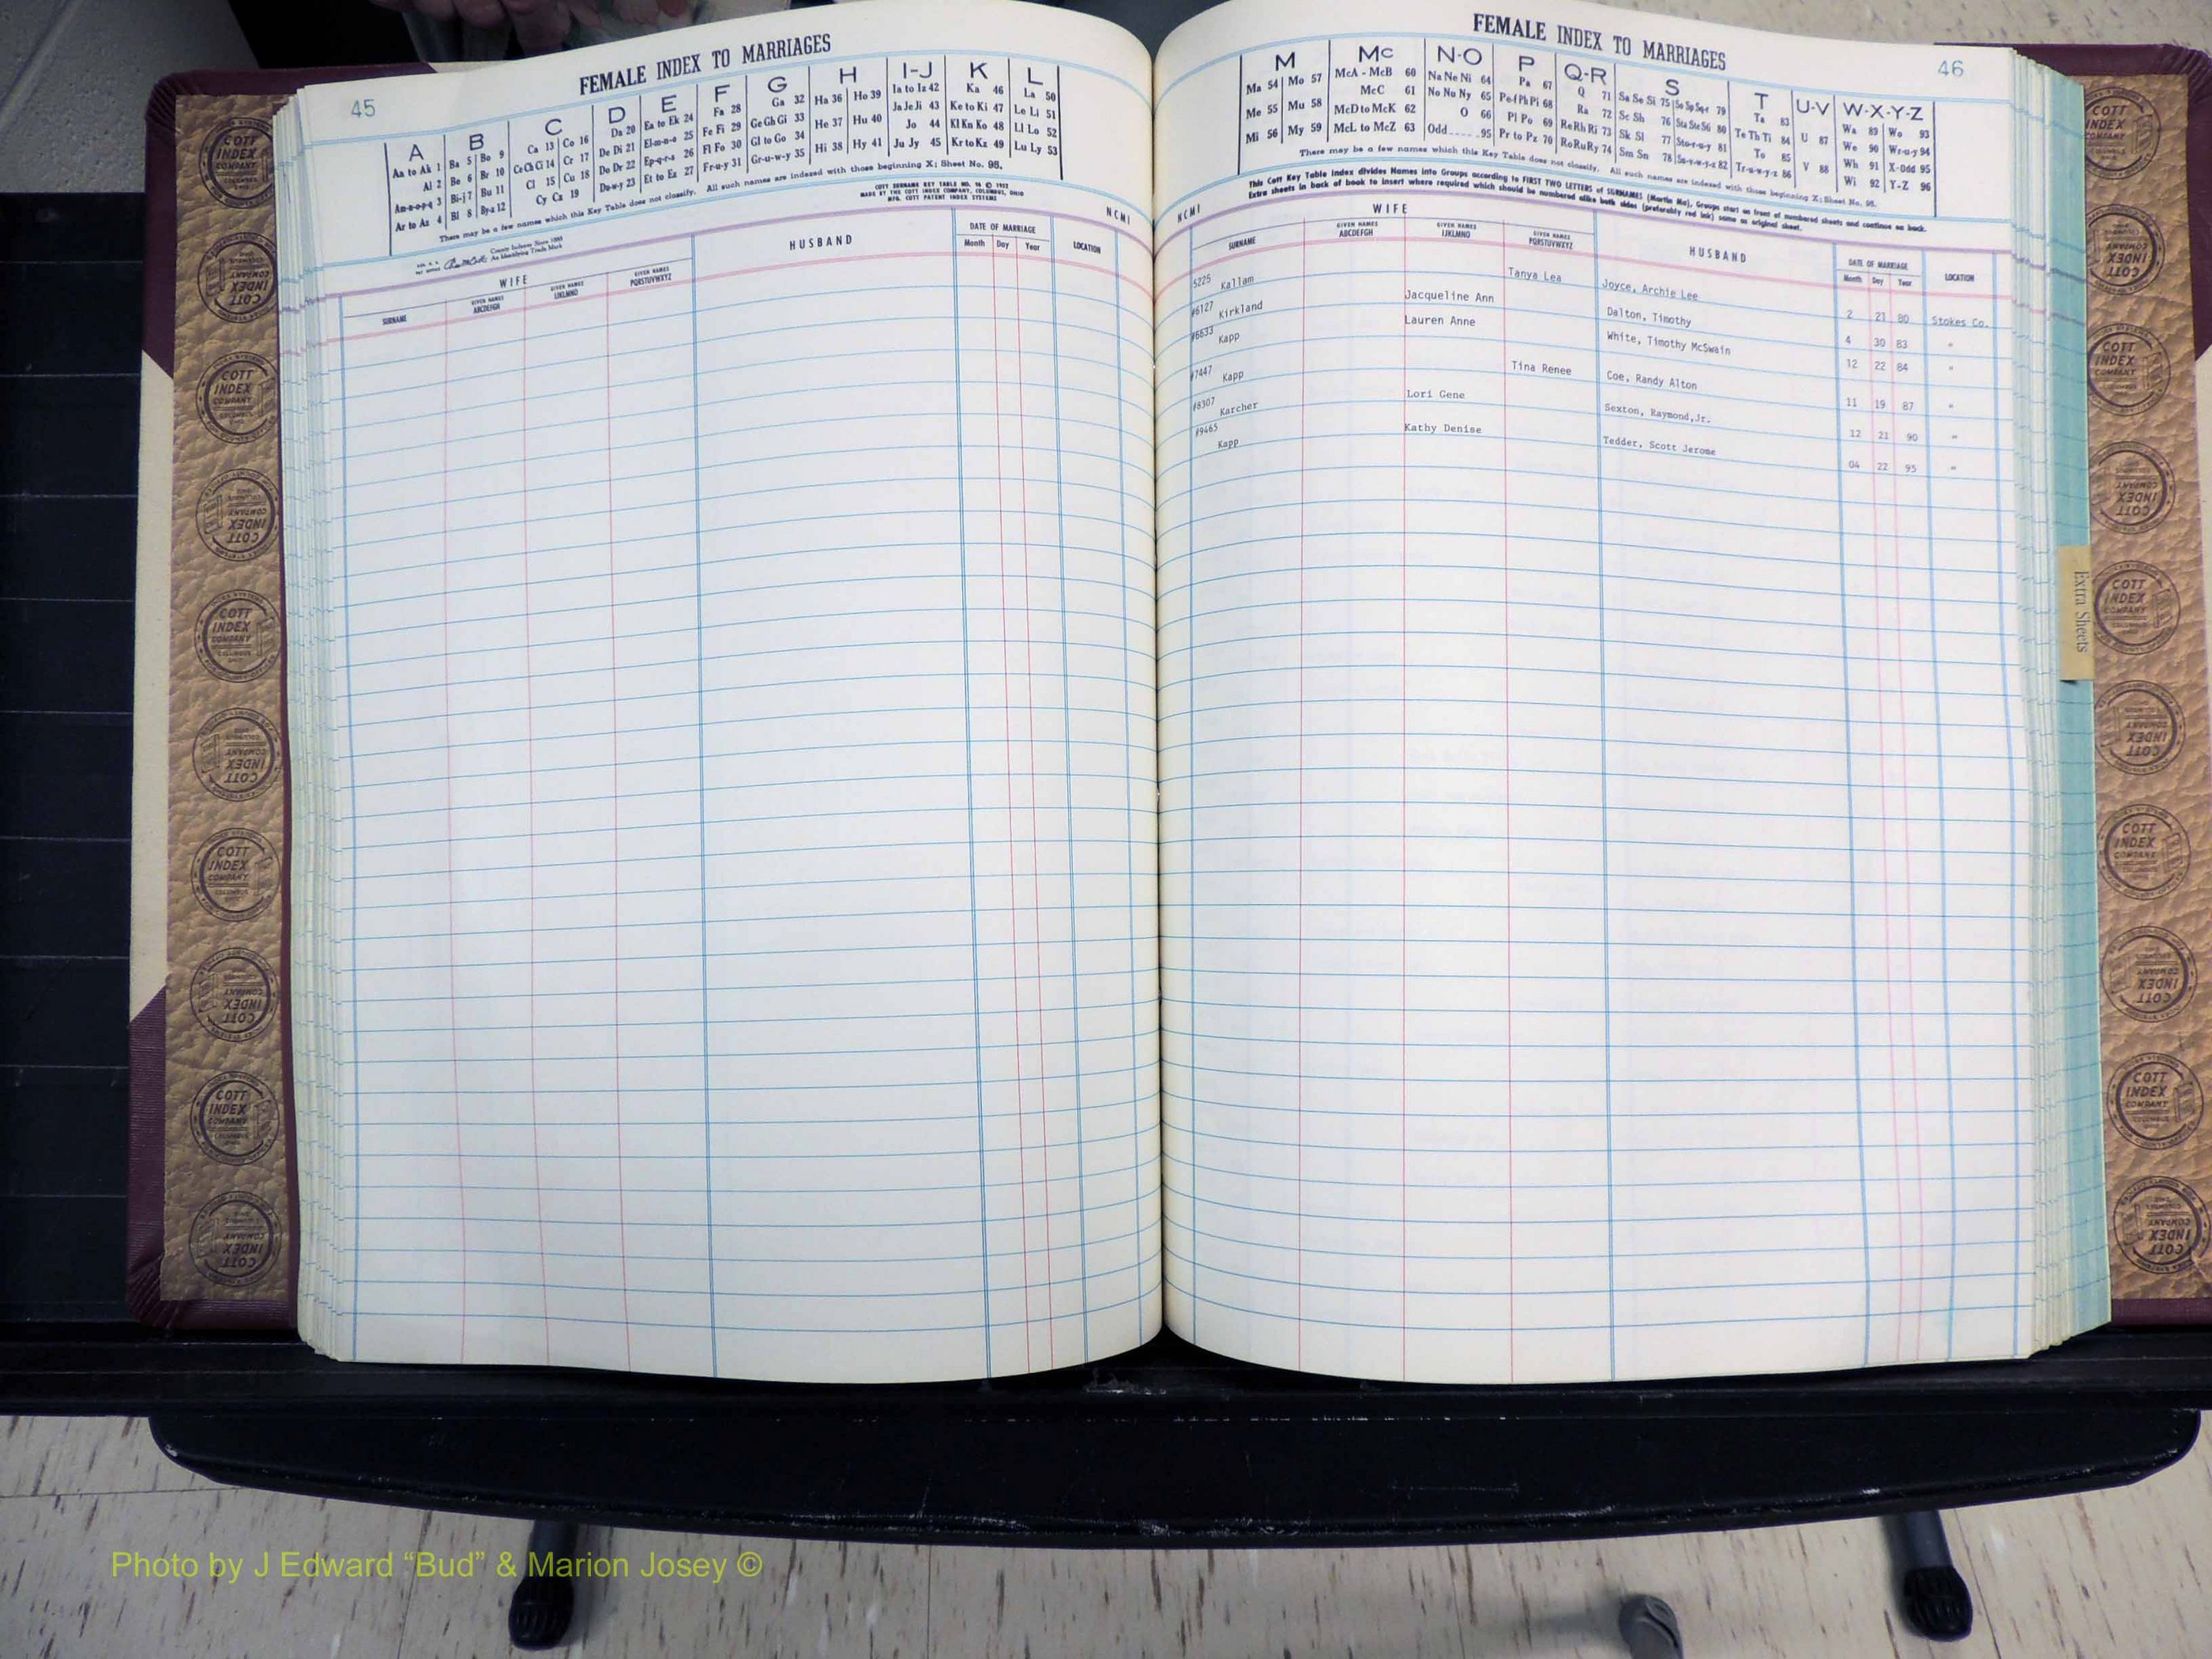 45
FEMALE INDEX TO MARRIAGES
A B C D E F G H I-J K L
Aa to Ak 1 Ba 5 Bo 9 Ca 13 Co 16 Da 20 Ea to Ek 24 Fa 28 Ga 32 Ha 36 Ho 39 Ia to Iz 42 Ka 46 La 50
Al 2 Be 6 Br 10 Ce Ch Ci 14 Cr 17 De Di 21 El-m-n-o 25 Fe Fi 29 Ge Gh Gi 33 He 37 Hu 40 Ja Je Ji 43 Ke to Ki 47 Le Li 51
Am-n-o-p-q 3 Bi-j 7 Bu 11 Cl 15 Cu 18 Do Dr 22 Ep-q-r-s 26 Fl Fo 30 Gl to Go 34 Hi 38 Hy 41 Jo 44 Kl Kn Ko 48 Ll Lo 52
Ar to Az 4 Bl 8 By-z 12 Cy Cz 19 Du-w-y 23 Et to Ez 27 Fr-u-y 31 Gr-u-w-y 35 Ju Jy 45 Kr to Kz 49 Lu Ly 53
There may be a few names which this Key Table does not classify. All such names are indexed with those beginning X; Sheet No. 95.
COTT SURNAME KEY TABLE NO. 96 © 1952
MADE BY THE COTT INDEX COMPANY, COLUMBUS, OHIO
MFG. COTT PATENT INDEX SYSTEMS
County Indexes Since 1888
An Identifying Trade Mark
NCMI
WIFE HUSBAND DATE OF MARRIAGE LOCATION
SURNAME GIVEN NAMES ABCDEFGH GIVEN NAMES IJKLMNO GIVEN NAMES PQRSTUVWXYZ Month Day Year
FEMALE INDEX TO MARRIAGES
46
M Mc N-O P Q-R S T U-V W-X-Y-Z
Ma 54 Mo 57 McA - McB 60 Na Ne Ni 64 Pa 67 Q 71 Sa Se Si 75 So Sp Sq-r 79 Ta 83 U 87 Wa 89 Wo 93
Me 55 Mu 58 McC 61 No Nu Ny 65 Pe-f Ph Pi 68 Ra 72 Sc Sh 76 Sta Ste Sti 80 Te Th Ti 84 V 88 We 90 Wr-u-y 94
Mi 56 My 59 McD to McK 62 O 66 Pl Po 69 Re Rh Ri 73 Sk Sl 77 Sto-r-u-y 81 To 85 Wh 91 X-Odd 95
McL to McZ 63 Odd 95 Pr to Pz 70 Ro Ru Ry 74 Sm Sn 78 Su-v-w-y-z 82 Tr-u-w-y-z 86 Wi 92 Y-Z 96
There may be a few names which this Key Table does not classify. All such names are indexed with those beginning X; Sheet No. 95.
This Cott Key Table Index divides Names into Groups according to FIRST TWO LETTERS of SURNAMES (Martin Ma), Groups start on front of numbered sheets and continue on back.
Extra sheets in back of book to insert where required which should be numbered alike both sides (preferably red ink) same as original sheet.
NCMI
WIFE HUSBAND DATE OF MARRIAGE LOCATION
SURNAME GIVEN NAMES ABCDEFGH GIVEN NAMES IJKLMNO GIVEN NAMES PQRSTUVWXYZ Month Day Year
5225 Kallam Tanya Lea Joyce, Archie Lee 2 21 80 Stokes Co.
#6127 Kirkland Jacqueline Ann Dalton, Timothy 4 30 83 "
#6633 Kapp Lauren Anne White, Timothy McSwain 12 22 84 "
#7447 Kapp Tina Renee Coe, Randy Alton 11 19 87 "
#8307 Karcher Lori Gene Sexton, Raymond,Jr. 12 21 90 "
#9465 Kapp Kathy Denise Tedder, Scott Jerome 04 22 95 "
Extra Sheets
COTT INDEX COMPANY
Photo by J Edward “Bud” & Marion Josey ©